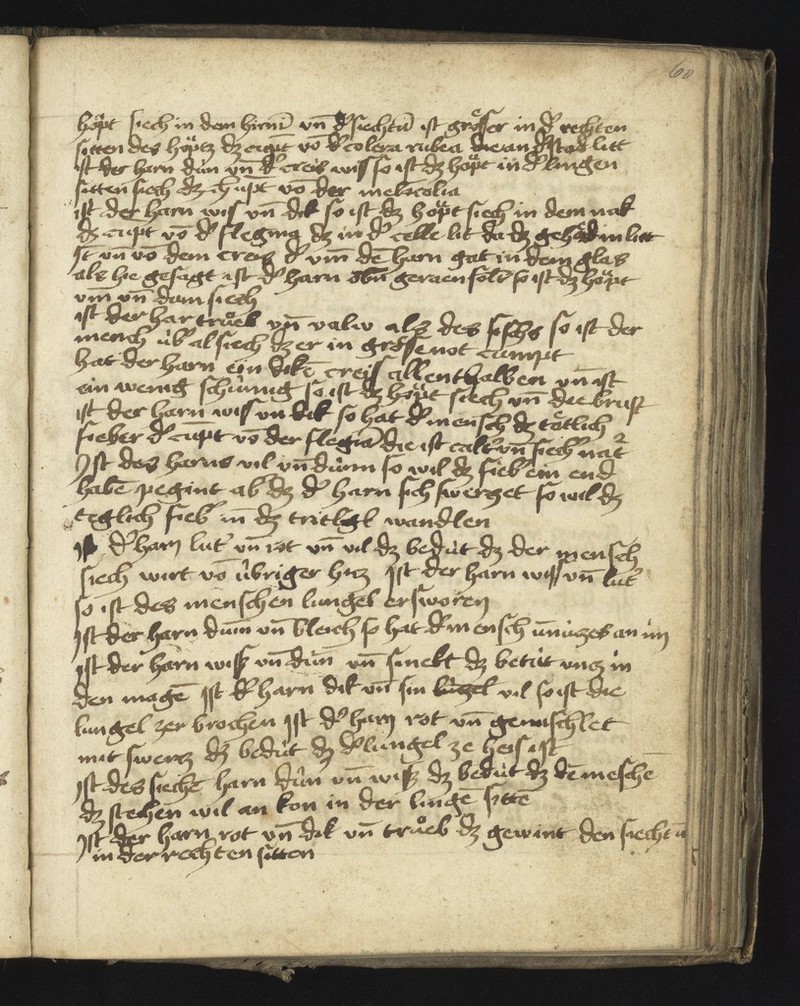 60
höpt siech in dem hirni vn̄ d' siechtū ist grösser in d' rechten
sitten des höptz dz cūpt vō d' colera rubea die an d' stat litt
ist der harn dün vn̄ d' creis wiss so ist dz höpt in d' lingen
sitten siech dz chūpt vō der melācolia
ist der harn wis vn̄ dik so ist dz höpt siech in dem nak
dz cūpt vō d' flegma dz in d' celle lit da dz gehūd in litt
ist vn̄ vō dem creis d' vm̄ dē harn gat in dem glas
als hie gesagt ist d' harn obn̄ so ist dz höpt
vm̄ vn̄ dam siech
ist der har trůeb vn̄ valw als des fischs so ist der
mench üb' al siech dz er in grösse not cumpt
hat der harn ein dikē creis allenthalben vn̄ ist
ein wenig schūmig so ist dz höpt siech vn̄ die brust
ist der harn wiss vn̄ dik so hat d' mensch dz tötlich
fieber d' cūpt vō der flegma die ist calt' vn̄ siech' nat'
Ist des harns vil vn̄ dünn so wil dz fieb' ein end
habē pegint ab dz d' harn sich swerget so wil dz
teglich fieb' in dz tritlgl wandlen
Ist d' harn lut' vn̄ rot vn̄ vil dz bedüt dz der mensch
siech wirt vō übriger hitz Ist der harn wiss vn̄ lut'
so ist des menschen lungel ersworen
Ist der harn dum̄ vn̄ bleich so hat d' mensch vnützes an im
Ist der harn wiss vn̄ dün vn̄ smekt dz betüt vncz in
den magē Ist d' harn dik vn̄ sin vil so ist die
lungel zer brochen Ist d' harn rot vn̄ gemischlet
mit swercz dz bedüt dz d' lungel ze heis ist
Ist des siechē harn dün vn̄ wiss dz bedüt dz dē meschē
dz stechen wil an kon in der lingē sittē
Ist der harn rot vn̄ dik vn̄ trůeb dz gewint den siechtū
in der rechten sitten